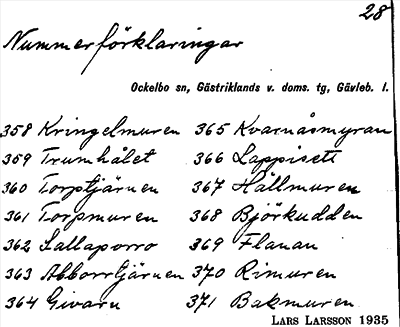 28
Nummerförklaringar
Ockelbo sn, Gästriklands v. doms. tg, Gävleb. l.
358 Kringelmuren 365 Kvarnåsmyran
359 Trumhålet 366 Lappisett
360 Torptjärnen 367 Hållmuren
361 Torpmuren 368 Björkudden
362 Lallaporro 369 Flanan
363 Abborrtjärnen 370 Rimuren
364 Givarn 371 Bakmuren
LARS LARSSON 1935